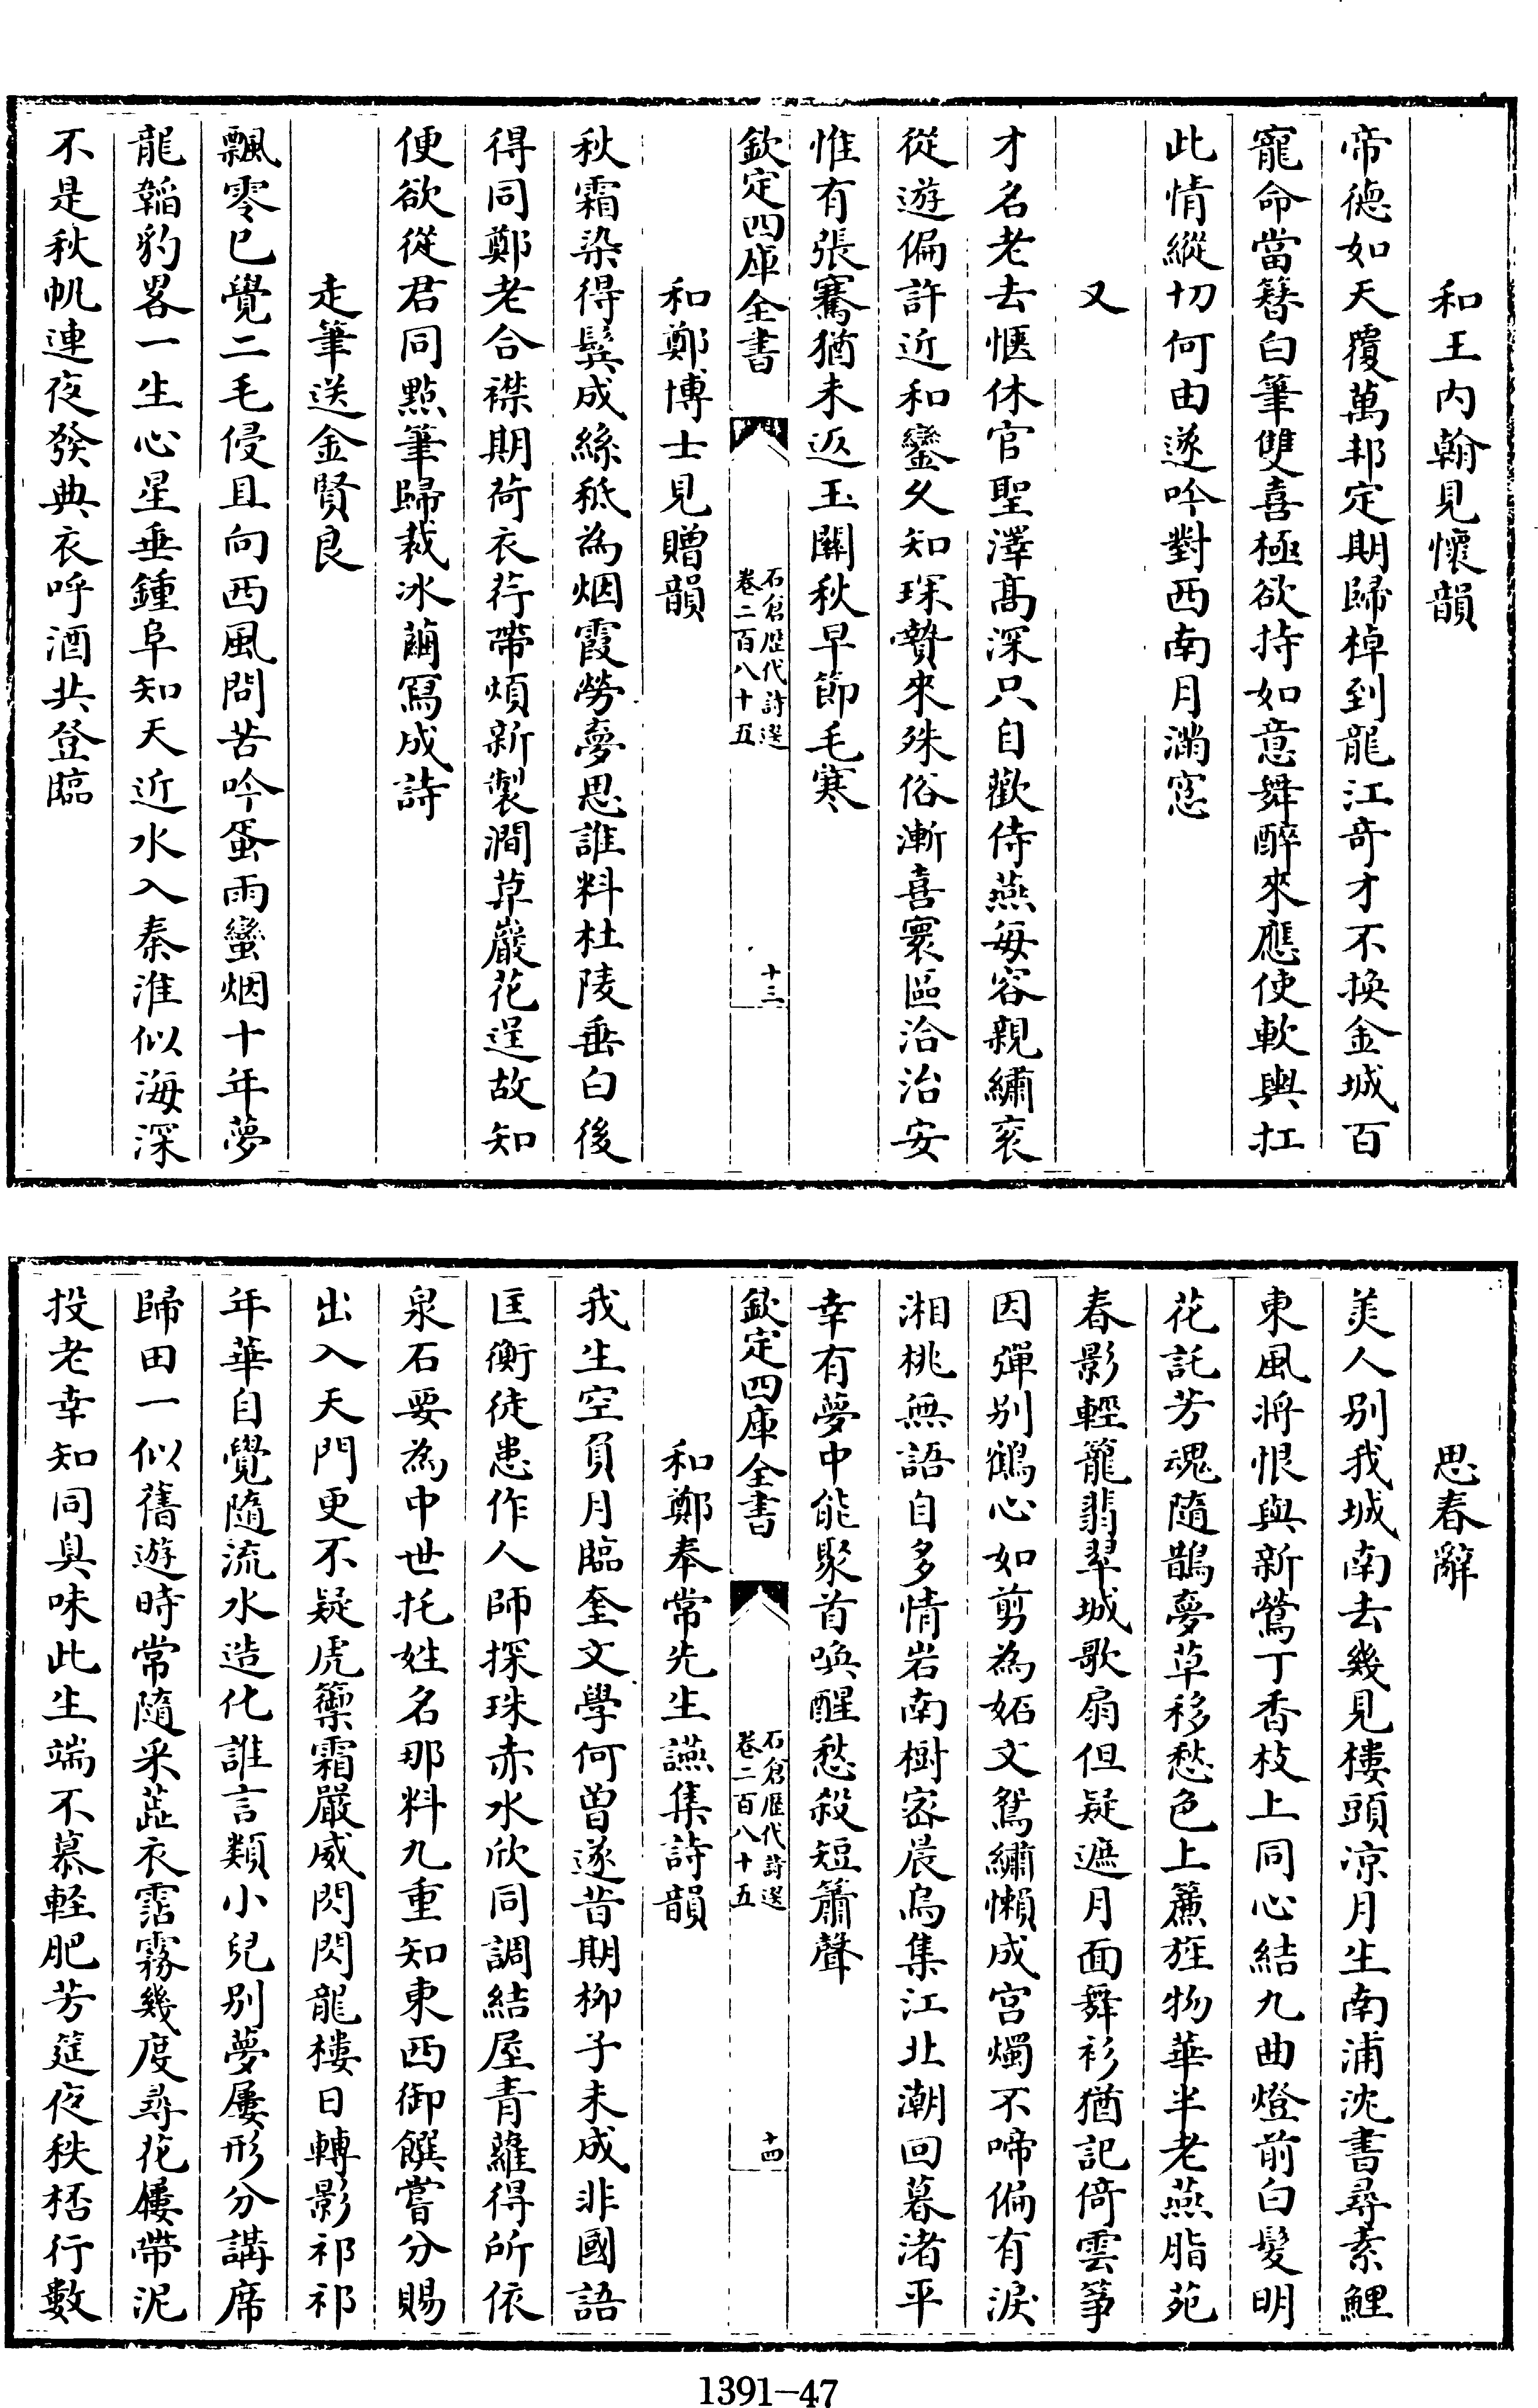 和王内翰見懷韻
帝徳如天覆萬邦定期歸棹到龍江竒才不換金城百
寵命當簪白筆雙喜極欲持如意舞醉來應使軟輿扛
此情縱切何由遂吟對西南月滿窓
又
才名老去愜休官聖澤髙深只自歡侍燕每容親繡衮
從遊偏許近和鑾久知琛贄來殊俗漸喜寰區洽治安
惟有張騫猶未返玉關秋早節毛寒
欽定四庫全書
石倉歴代詩選
卷二百八十五
十三
和鄭博士見贈韻
秋霜染得鬂成絲秪為烟霞勞夢思誰料杜陵垂白後
得同鄭老合襟期荷衣荇帶煩新製澗草巖花逞故知
便欲從君同㸃筆歸裁冰繭冩成詩
走筆送金賢良
飄零已覺二毛侵且向西風問苦吟蛋雨蠻烟十年夢
龍韜豹畧一生心星垂鍾阜知天近水入秦淮似海深
不是秋帆連夜發典衣呼酒共登臨
思春辭
美人别我城南去幾見樓頭凉月生南浦沈書尋素鯉
東風將恨與新鶯丁香枝上同心結九曲燈前白髮明
花託芳魂隨鵲夢草移愁色上簾旌物華半老燕脂苑
春影輕籠翡翠城歌扇但疑遮月面舞衫猶記倚雲筝
因彈别鶴心如剪為妬文鴛繡懶成宫燭不啼偏有淚
湘桃無語自多情岩南樹宻晨烏集江北潮回暮渚平
幸有夢中能聚首唤醒愁殺短簫聲
欽定四庫全書
石倉歴代詩選
卷二百八十五
十四
和鄭奉常先生讌集詩韻
我生空負月臨奎文學何曽遂昔期柳子未成非國語
匡衡徒患作人師探珠赤水欣同調結屋青蘿得所依
泉石要為中世托姓名那料九重知東西御饌嘗分賜
出入天門更不疑虎籞霜嚴威閃閃龍樓日轉影祁祁
年華自覺隨流水造化誰言類小兒别夢屢形分講席
歸田一似舊遊時常隨采蕋衣霑霧幾度尋花屨帶泥
投老幸知同臭味此生端不慕軽肥芳筵夜秩桮行數
1391—47